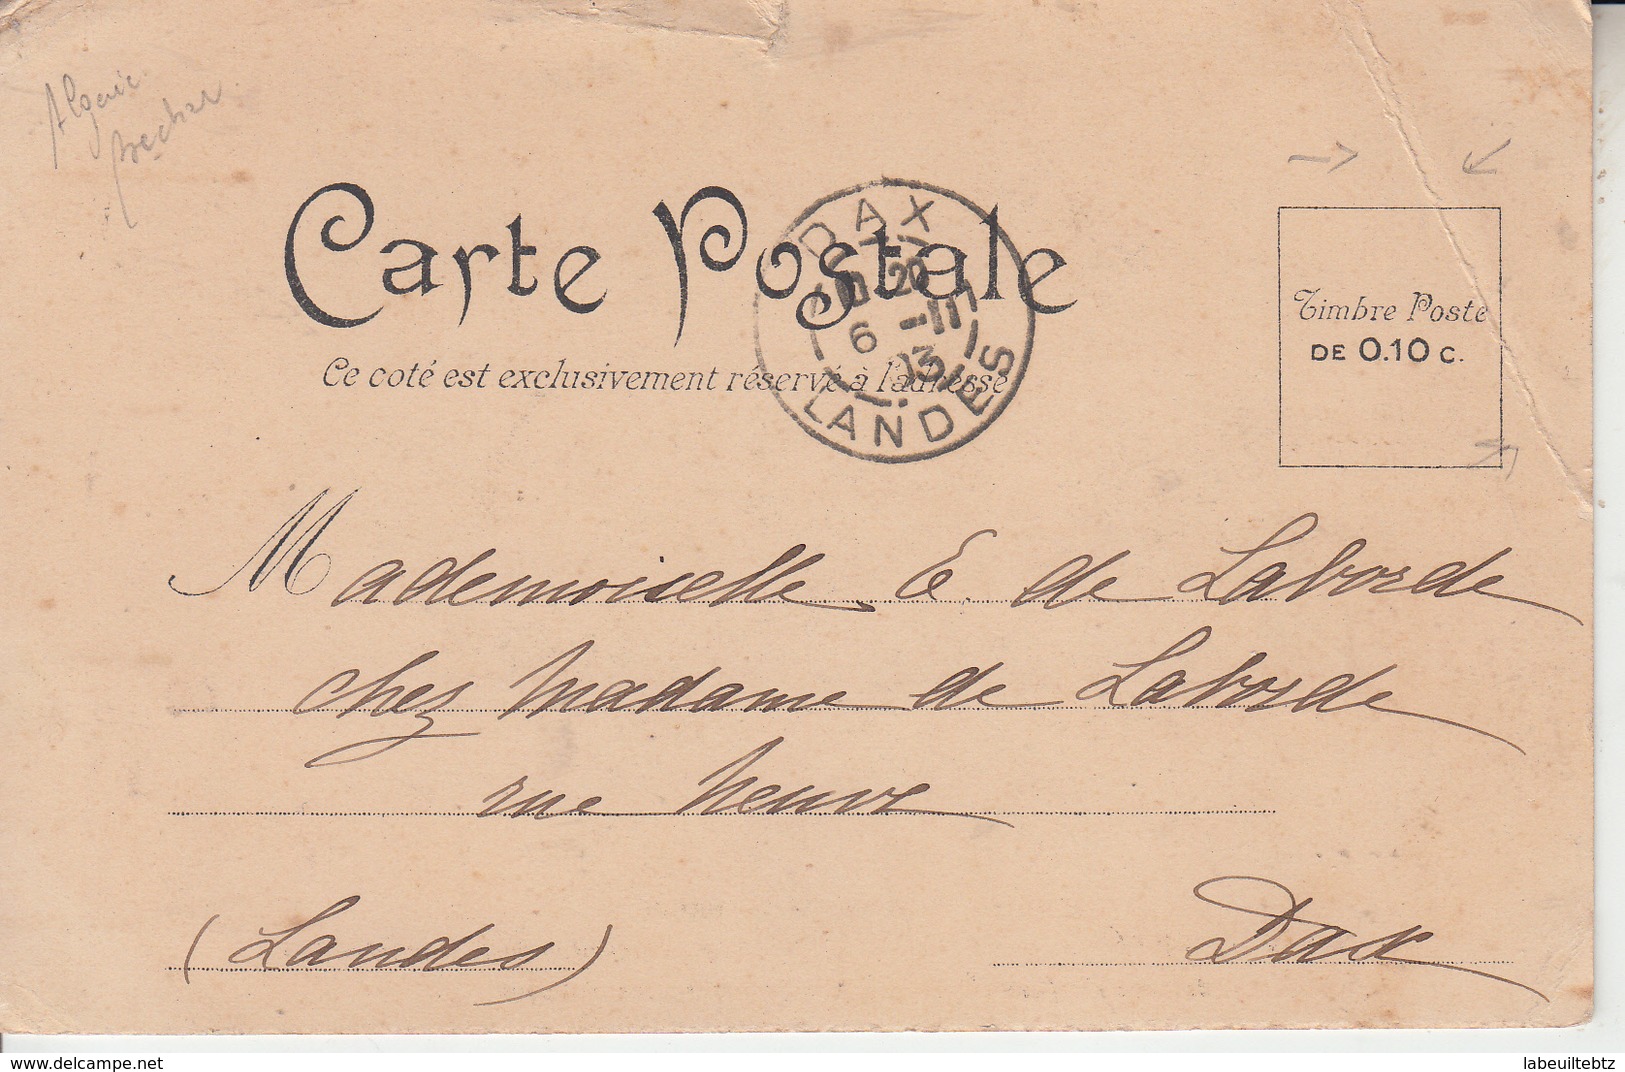 Algérie
Bechar
Carte Postale
Ce coté est exclusivement réservé à l'adresse
DAX
20
6 -11
03
LANDES
Timbre Poste
DE 0.10 C.
Mademoiselle E. de Laborde
chez Madame de Laborde
rue Neuve
(Landes) Dax
delcampe.net
labeuiltebtz